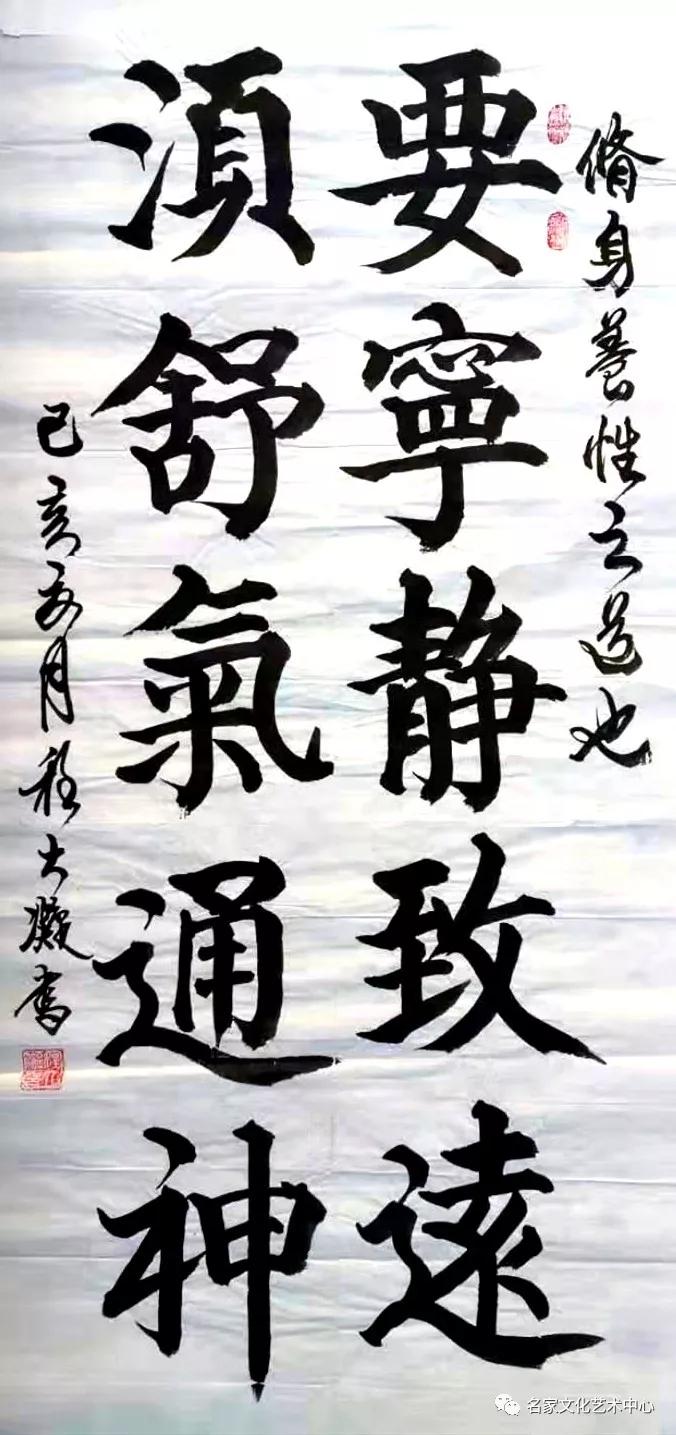 脩身養性之道也
要寧静致遠
湏舒氣通神
己亥亥月程大書
名家文化艺术中心